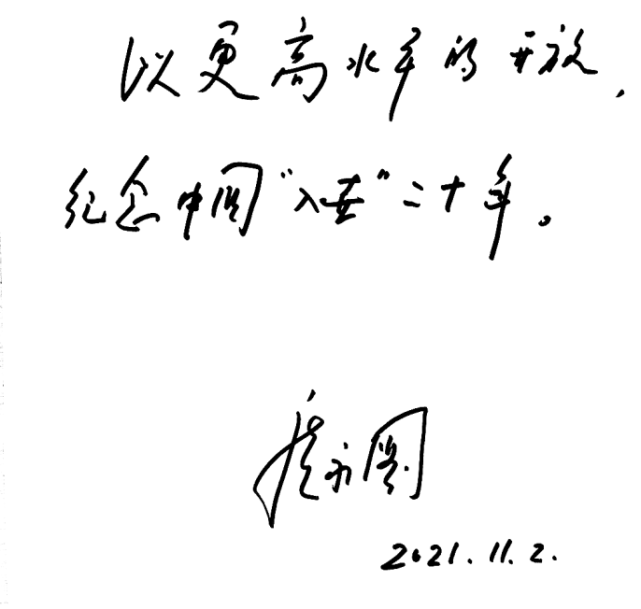 以更高水平的开放，
纪念中国“入世”二十年。
龙永图
2021.11.2.